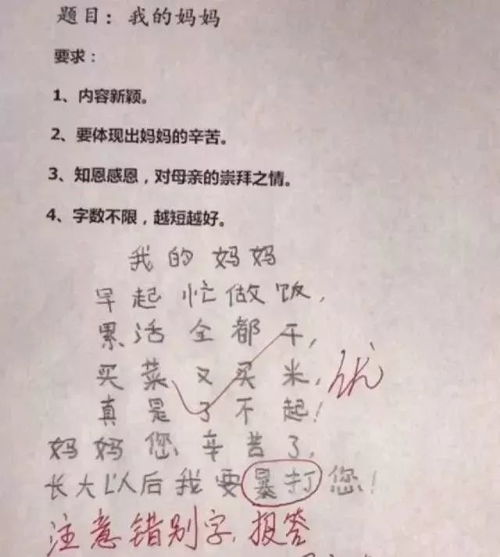 题目：我的妈妈
要求：
1、内容新颖。
2、要体现出妈妈的辛苦。
3、知恩感恩，对母亲的崇拜之情。
4、字数不限，越短越好。
我的妈妈
早起忙做饭，
累活全都干，
买菜又买米，优
真是了不起！
妈妈您辛苦了，
长大以后我要暴打您！
注意错别字，报答